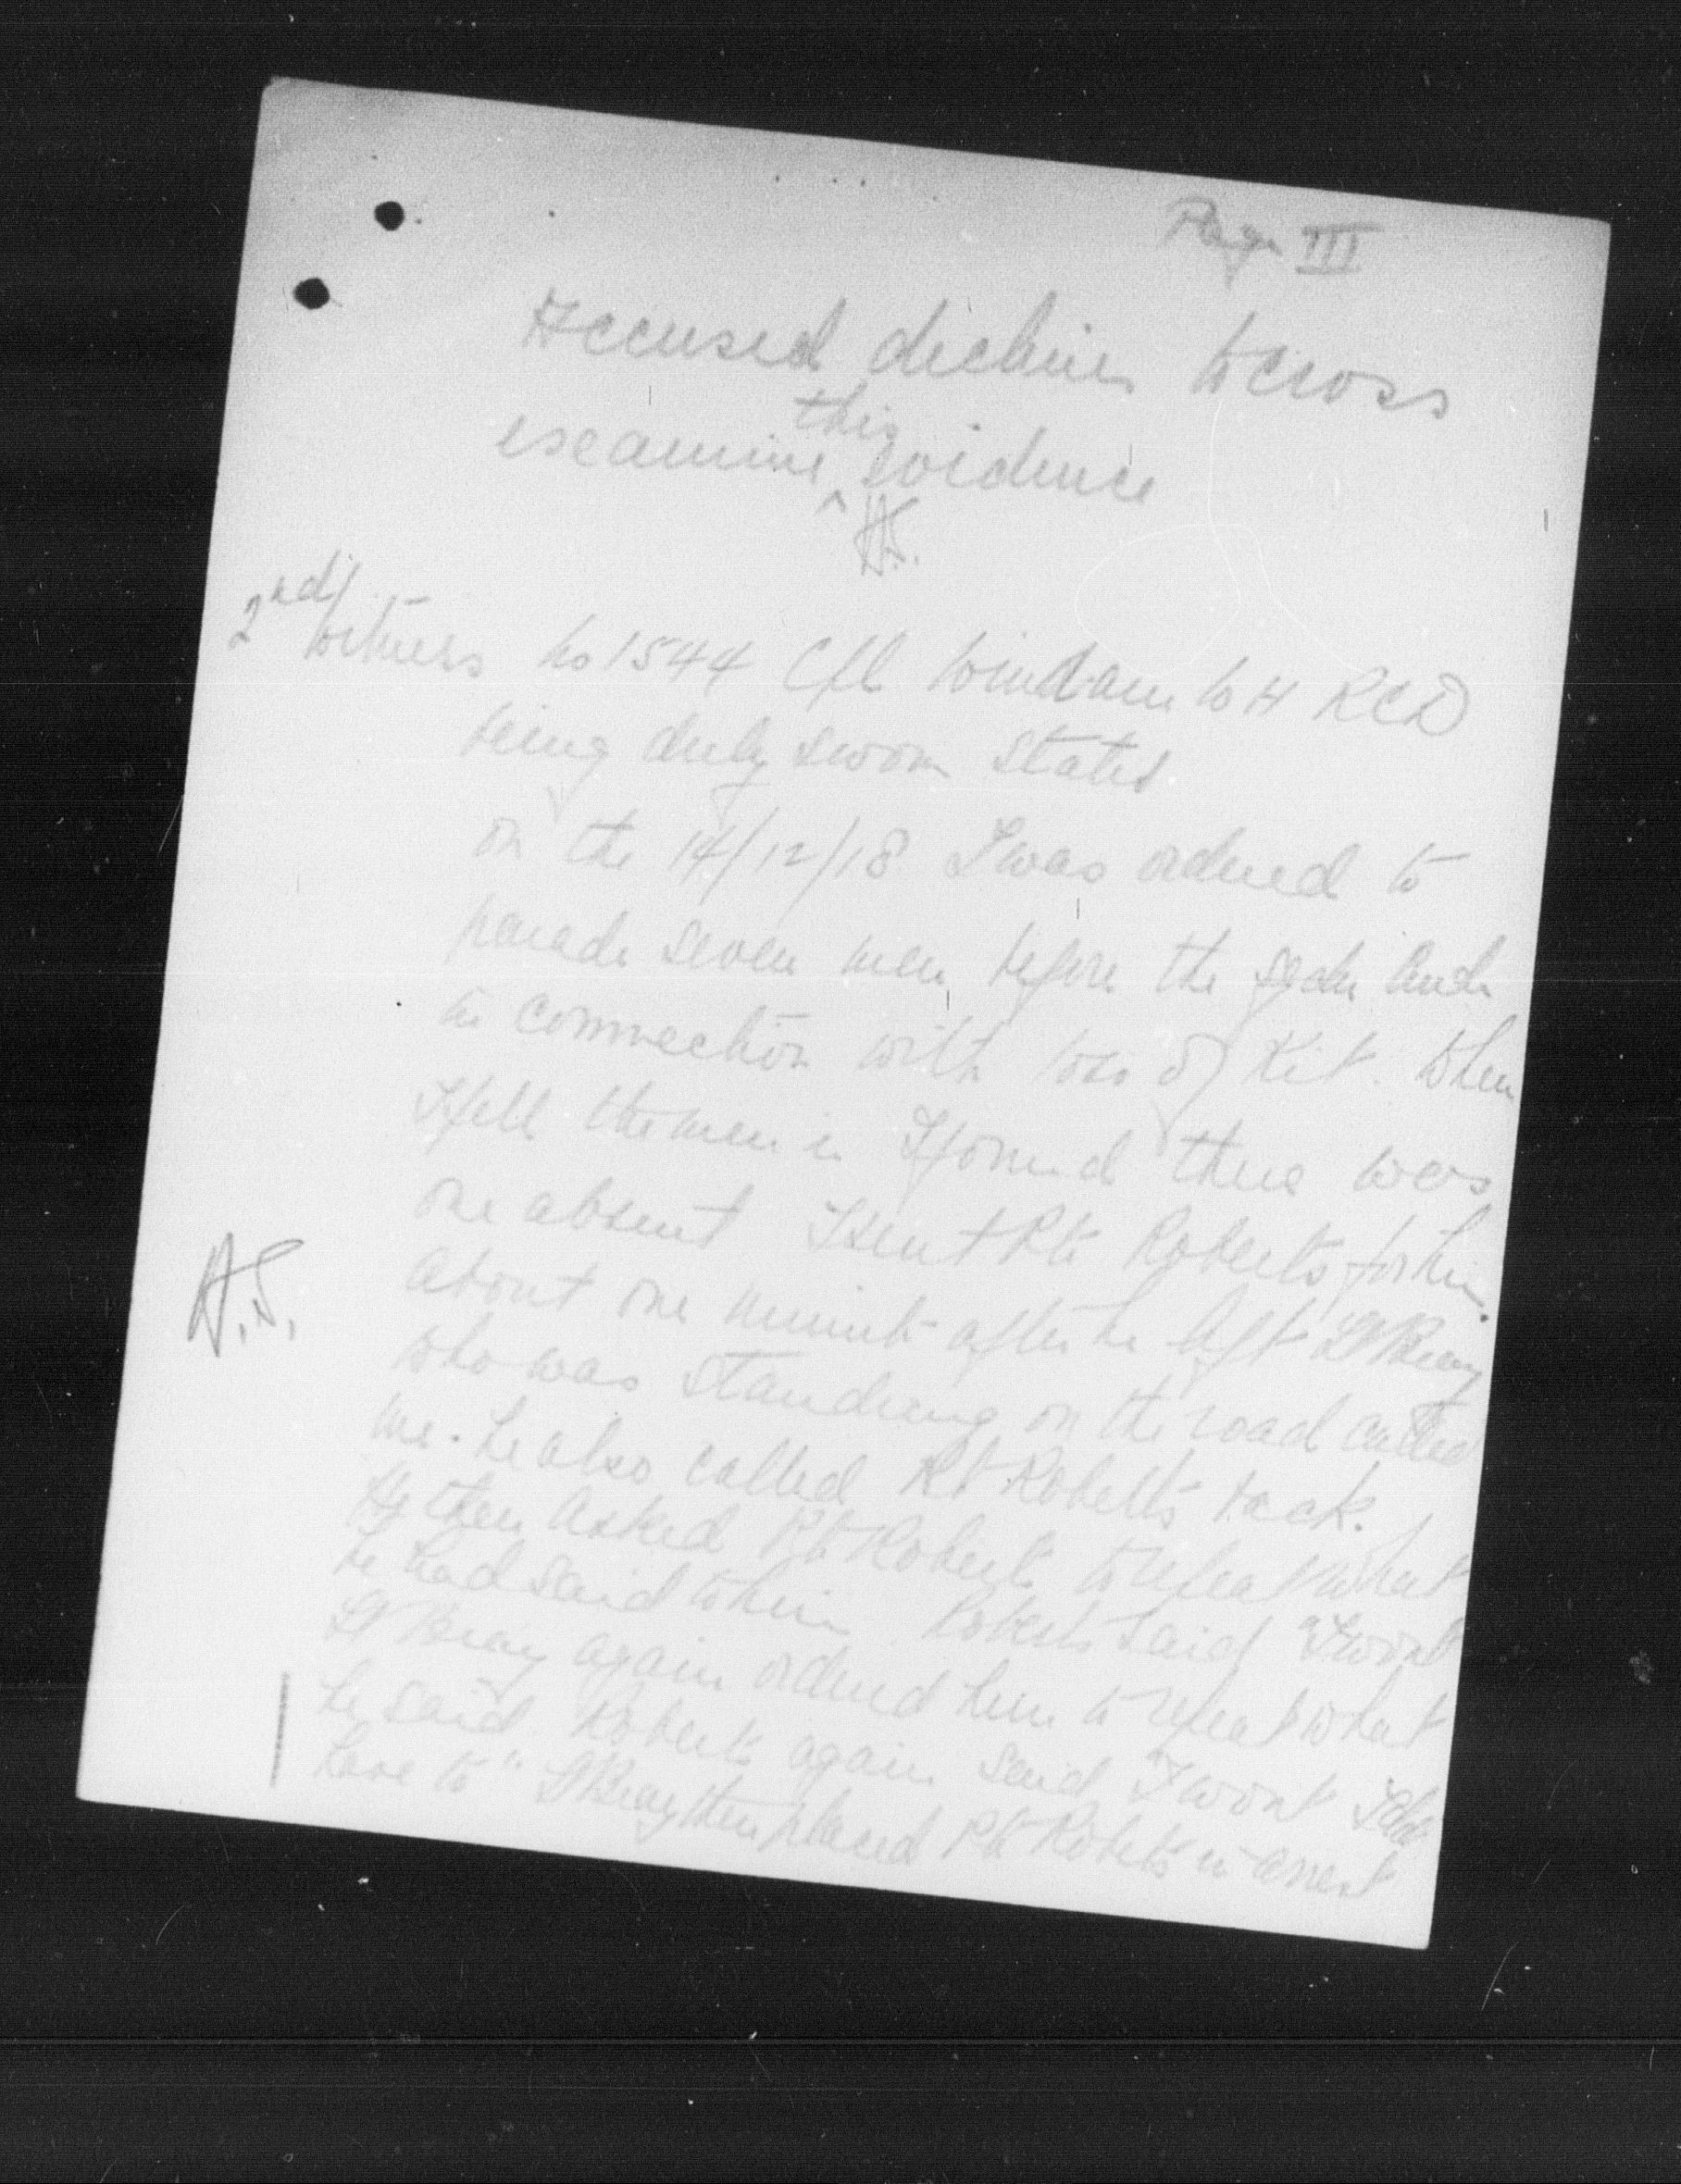 Page III
Accused declines to cross
examine this evidence
H.S.
2nd Witness No 1544 Cpl Windam W H RCD
being duly sworn states
on the 14/12/18 I was ordered to
parade seven men before the
in connection with loss of Kit. When
I fell the men in I found there was
one absent I sent Pte Roberts for him.
About one minute after he left Lt Bray
who was standing on the road called
H.S.
me. he also called Pt Roberts back.
He then asked Pte Roberts to repeat what
he had said to him Roberts said "I wont
Lt Bray again ordered him to repeat what
he said. Roberts again said I wont I dont
have to" Lt Bray then placed Pte Roberts in arrest